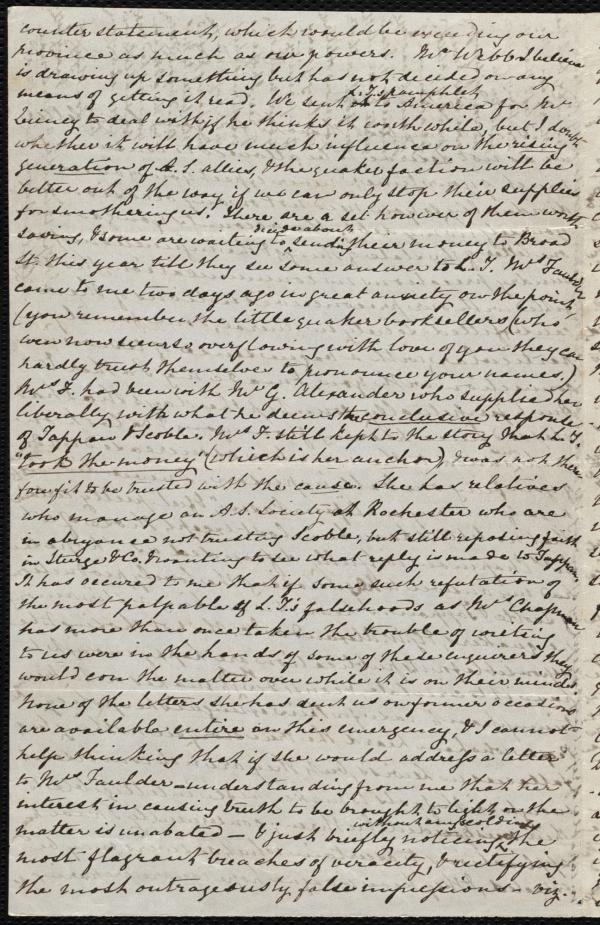 counter statement, which would be exceeding our
province as much as our powers. Mr. Webb I believe
is drawing up something but has not decided on any
means of getting it read. We sent L.T.'s pamphlet on to America for Mr
to deal with, if he thinks it worth while, but I doubt
whether it will have much influence on the rising
generation of A.S. allies, & the quaker faction will be
better out of the way if we can only stop their supplies
for smothering us. There are a set however of them worth
saving, & some are waiting to decide about sending their money to Broad
St. this year till they see some answer to L.T. Mrs Faulder
came to me two days ago in great anxiety on the point
(you remember the little quaker booksellers (who
were now seen so overflowing with love of you they can
hardly trust themselves to pronounce your names.)
Mrs F. had been with Mr G. Alexander who supplied her
liberally with what he deems the conclusive response
of Tappan & Scoble. Mrs F. still kept to the story that L.T.
"took the money" (which is her anchor) & was not there
fore fit to be trusted with the cause. She has relatives
who manage an A.S. Society at Rochester who are
in abeyance not trusting Scoble, but still reposing faith
in Sturge & Co. & wanting to see what reply is made to Tappan.
It has occured to me that if some such refutation of
the most palpable of L.T.'s falsehoods as Mrs Chapman
has more than once taken the trouble of writing
to us were in the hands of some of these enquirers they
would con the matter over while it is on their minds.
None of the letters she has sent us on former occasions
are available entire on this emergency, & I cannot
help thinking that if she would address a letter
to Mrs Faulder - understanding from me that her
interest in causing truth to be brought to light on the
matter is unabated - & just briefly noticing without any scolding the
most flagrant breaches of veracity, & rectifying
the most outrageously false impressions - viz.